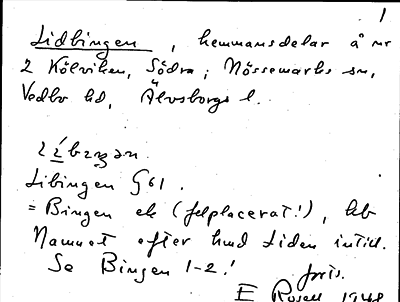 1
Lidbingen, hemmansdelar å nr
2 Kölviken, Södra; Nössemarks sn,
Vedbo hd, Älvsborgs l.
Libingen G61.
= Bingen ek (felplacerat!),
Namnet efter hmd Liden intill.
Se Bingen 1-2!
forts.
E Rosell 1948